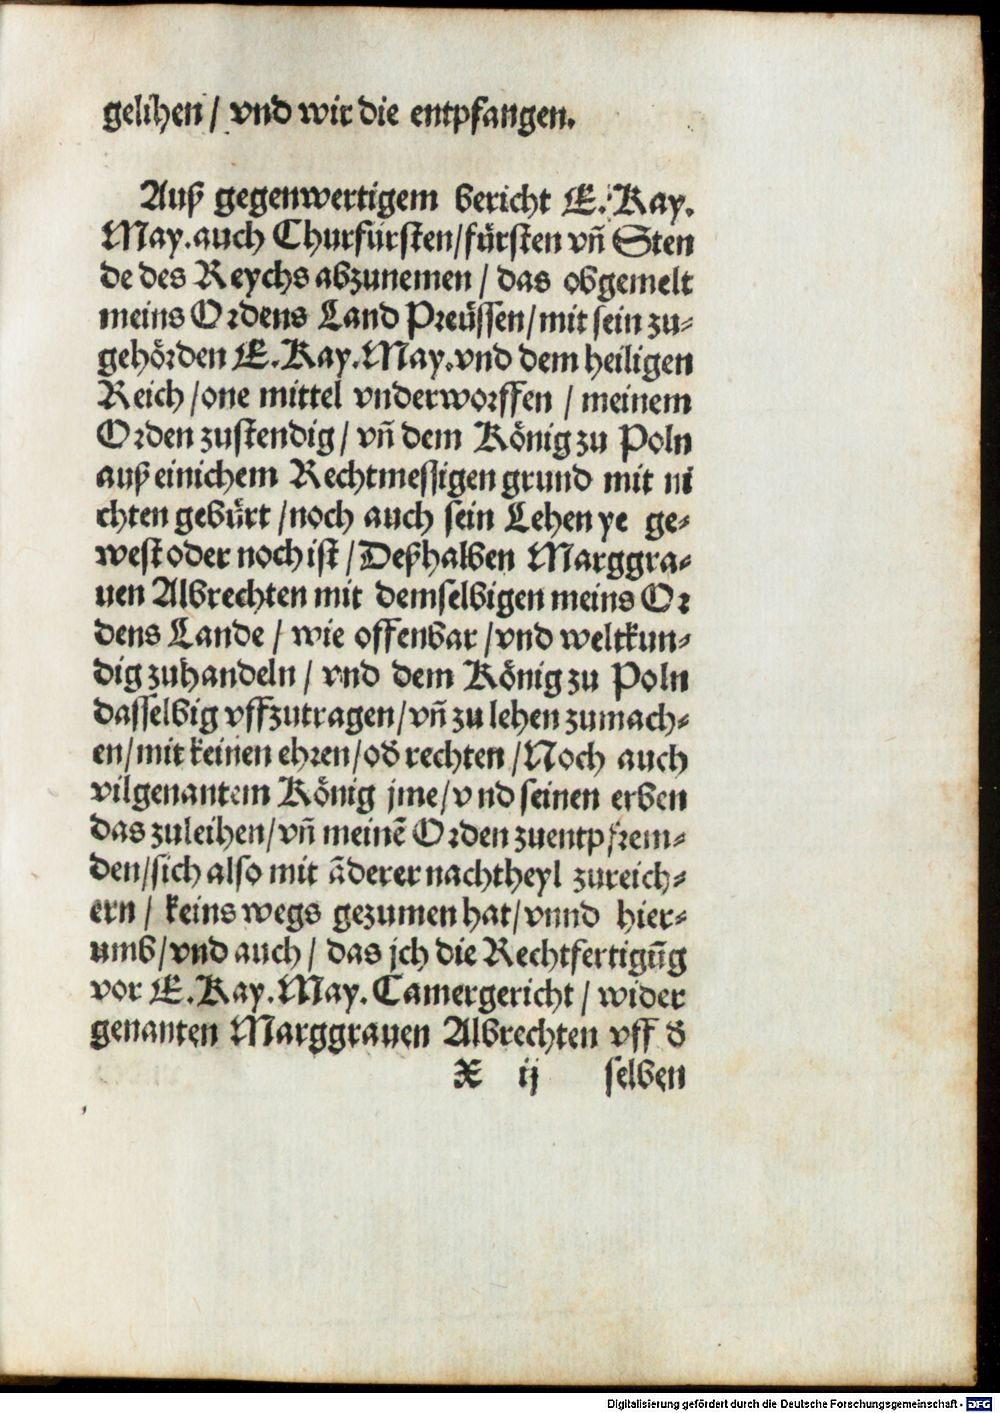 gelihen / vnd wir die entpfangen.
Auß gegenwertigem bericht E. Kay.
May. auch Churfürsten/fürsten vñ Sten
de des Reychs abzunemen / das obgemelt
meins Ordens Land Preüssen/mit sein zu-
gehörden E. Kay. May. vnd dem heiligen
Reich /one mittel vnderworffen / meinem
Orden zustendig / vñ dem König zu Poln
auß einichem Rechtmessigen grund mit ni
chten gebürt /noch auch sein Lehen ye ge-
west oder noch ist / Deßhalben Marggra-
uen Albrechten mit demselbigen meins Or
dens Lande / wie offenbar /vnd weltkun-
dig zuhandeln / vnd dem König zu Poln
dasselbig vffzutragen/vñ zu lehen zumach-
en/mit keinen ehren/oď rechten /Noch auch
vilgenantem König jme/vnd seinen erben
das zuleihen/vñ meinē Orden zuentpfrem-
den/sich also mit āderer nachtheyl zureich-
ern / keins wegs gezumen hat/vnnd hier-
umb/vnd auch / das jch die Rechtfertigūg
vor E. Kay. May. Camergericht / wider
genanten Marggrauen Albrechten vff ď
X ij selben
Digitalisierung gefördert durch die Deutsche Forschungsgemeinschaft - DFG